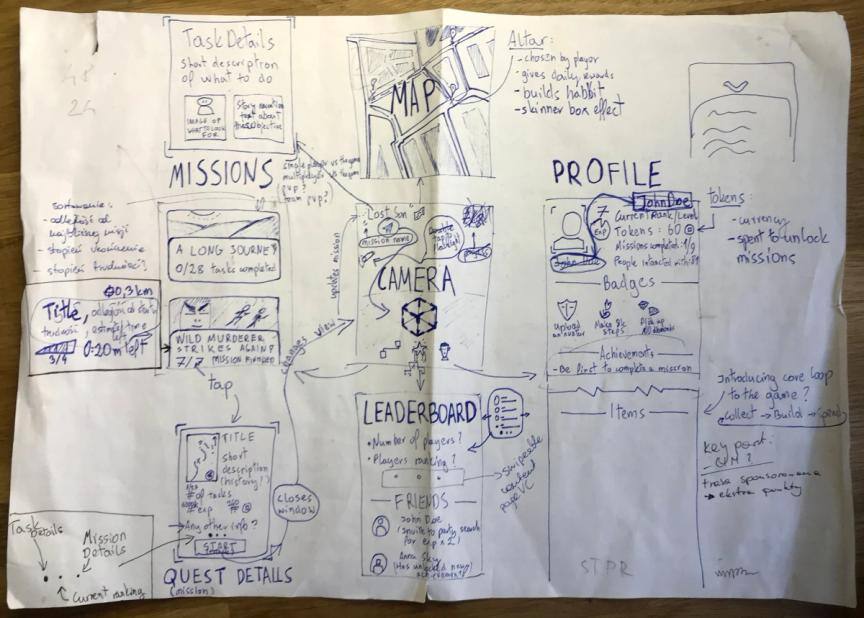 Task Details
short description
of what to do
IMAGE OF
WHAT TO LOOK
FOR
story narration
text about
the objective
MAP
Altar:
- chosen by player
- gives daily rewards
- builds habbit
- skinner box effect
MISSIONS
single player vs the game
multiplayer vs the game
PvP?
team PvP?
sortowanie:
- odległość od
najbliższej misji
- stopień ukończenia
- stopień trudności?
A LONG JOURNEY
0/28 tasks completed
0,3 km
Title, odległość od startu
trudność, estimated time
left
3/4
0:20m left
WILD MURDERER
STRIKES AGAIN?
7/7 MISSION FINISHED
tap
updates mission
mission name
CAMERA
changes view
PROFILE
John Doe
7
Exp
Current Rank/Level
Tokens: 60
Missions completed: 1/9
People interacted with: 89
John Doe
Badges
Upload
an avatar
Make 5k
steps
Pick up
Achievements
- Be first to complete a mission
Items
tokens:
- currency
- spent to unlock
missions
Introducing core loop
to the game?
Collect → Build → Spend
key point:
LEADERBOARD
• Number of players?
• Players ranking?
→ swipeable
content
page VC
FRIENDS
John Doe
(invite to party search
for exp x2)
Anna Sky
(Has unlocked new
achievement)
TITLE
short
description
(history!)
# of tasks
# exp
Any other info?
START
closes
window
QUEST DETAILS
(mission)
Task
Details
Mission
Details
Current ranking
STPR